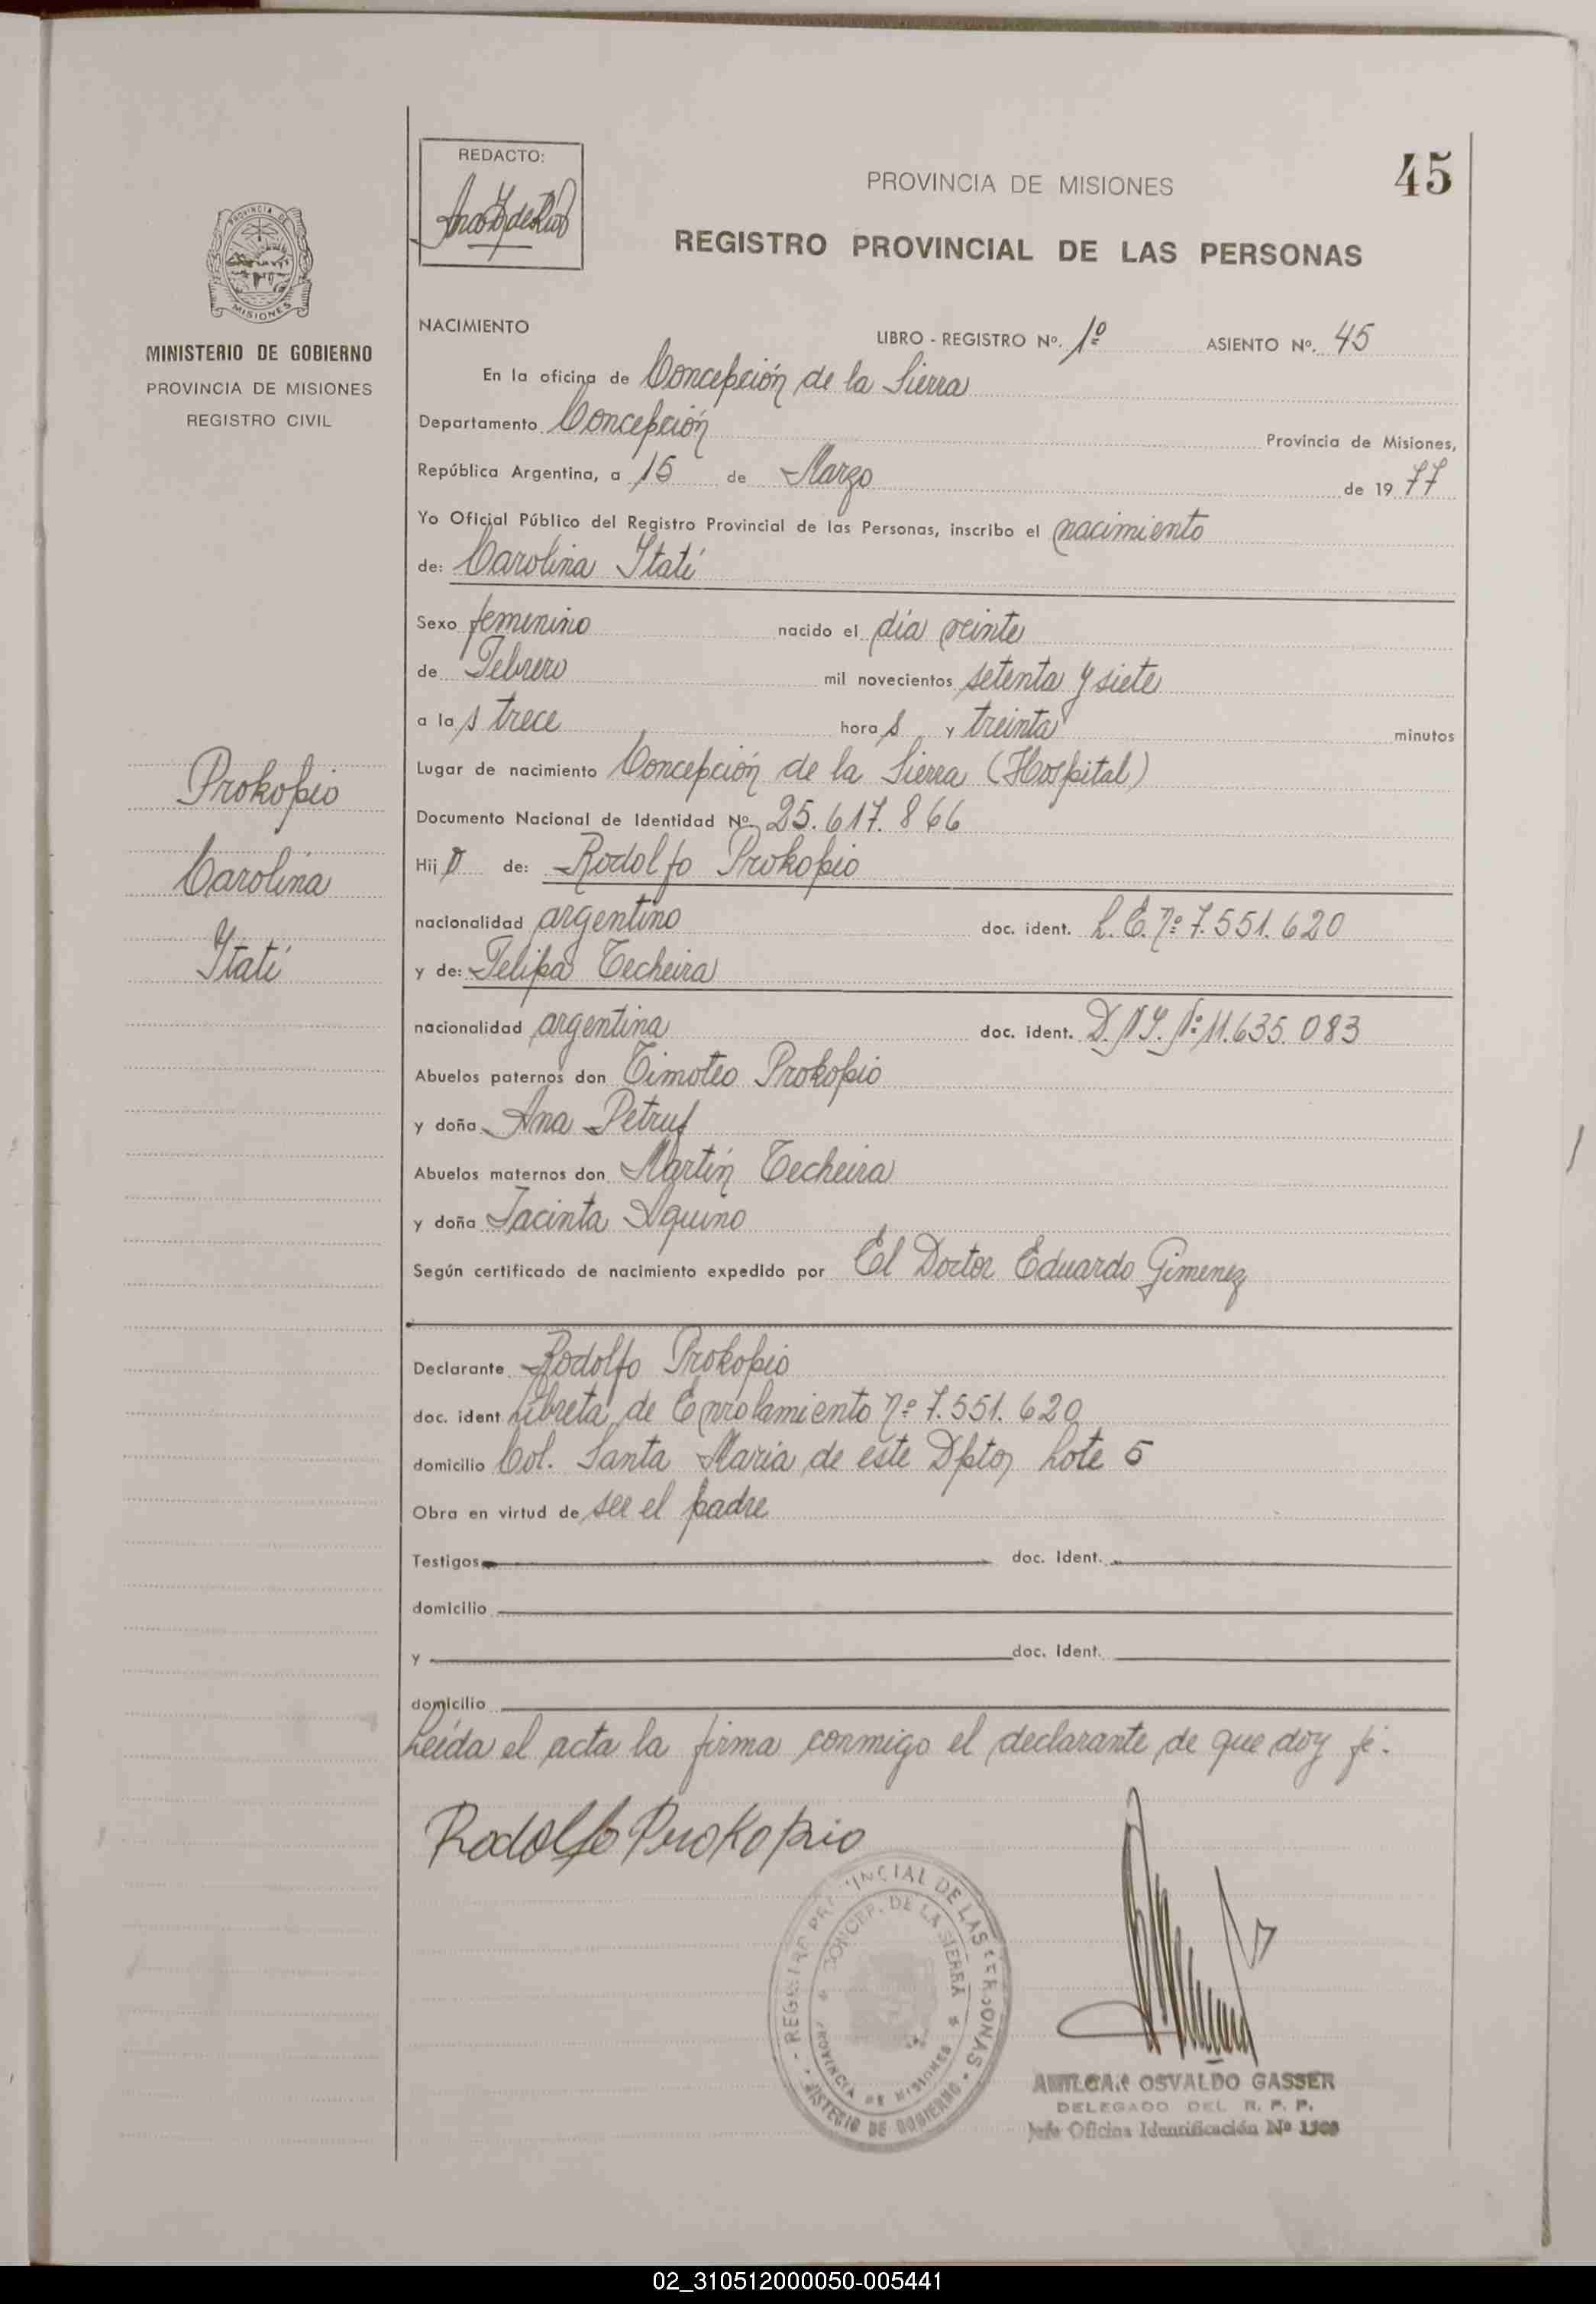 REDACTO:
PROVINCIA DE MISIONES
45
REGISTRO PROVINCIAL DE LAS PERSONAS
PROVINCIA DE
MISIONES
MINISTERIO DE GOBIERNO
PROVINCIA DE MISIONES
REGISTRO CIVIL
NACIMIENTO
LIBRO - REGISTRO Nº. 1º ASIENTO Nº. 45
En la oficina de Concepción de la Sierra
Departamento Concepción Provincia de Misiones,
República Argentina, a 15 de Marzo de 19 77
Yo Oficial Público del Registro Provincial de las Personas, inscribo el nacimiento
de: Carolina Itatí
Sexo femenino nacido el día veinte
de Febrero mil novecientos setenta y siete
a la s trece hora s y treinta minutos
Lugar de nacimiento Concepción de la Sierra (Hospital)
Documento Nacional de Identidad Nº 25.617.866
Hij a de: Rodolfo Prokopio
nacionalidad argentino doc. ident. L.E. nº 7.551.620
y de: Felipa Techeira
nacionalidad argentina doc. ident. D.N.I. Nº 11.635.083
Abuelos paternos don Timoteo Prokopio
y doña Ana Petruf
Abuelos maternos don Martín Techeira
y doña Jacinta Aquino
Según certificado de nacimiento expedido por El Doctor Eduardo Gimenez
Declarante Rodolfo Prokopio
doc. ident Libreta de Enrolamiento nº 7.551.620
domicilio Col. Santa Maria de este Dpto, Lote 5
Obra en virtud de ser el padre
Testigos doc. ident.
domicilio
y doc. ident.
domicilio
Leída el acta la firma conmigo el declarante de que doy fé.
Prokopio
Carolina
Itatí
Rodolfo Prokopio
REGISTRO PROVINCIAL DE LAS PERSONAS
CONCEP. DE LA SIERRA
PROVINCIA DE MISIONES
MINISTERIO DE GOBIERNO
AMILCAR OSVALDO GASSER
DELEGADO DEL R. P. P.
Jefe Oficina Identificación Nº
02_310512000050-005441